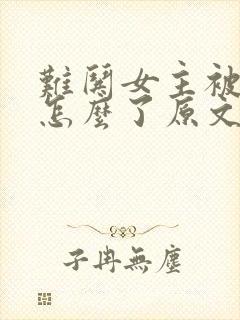 難關女主被
怎麼了原文
子冉無塵